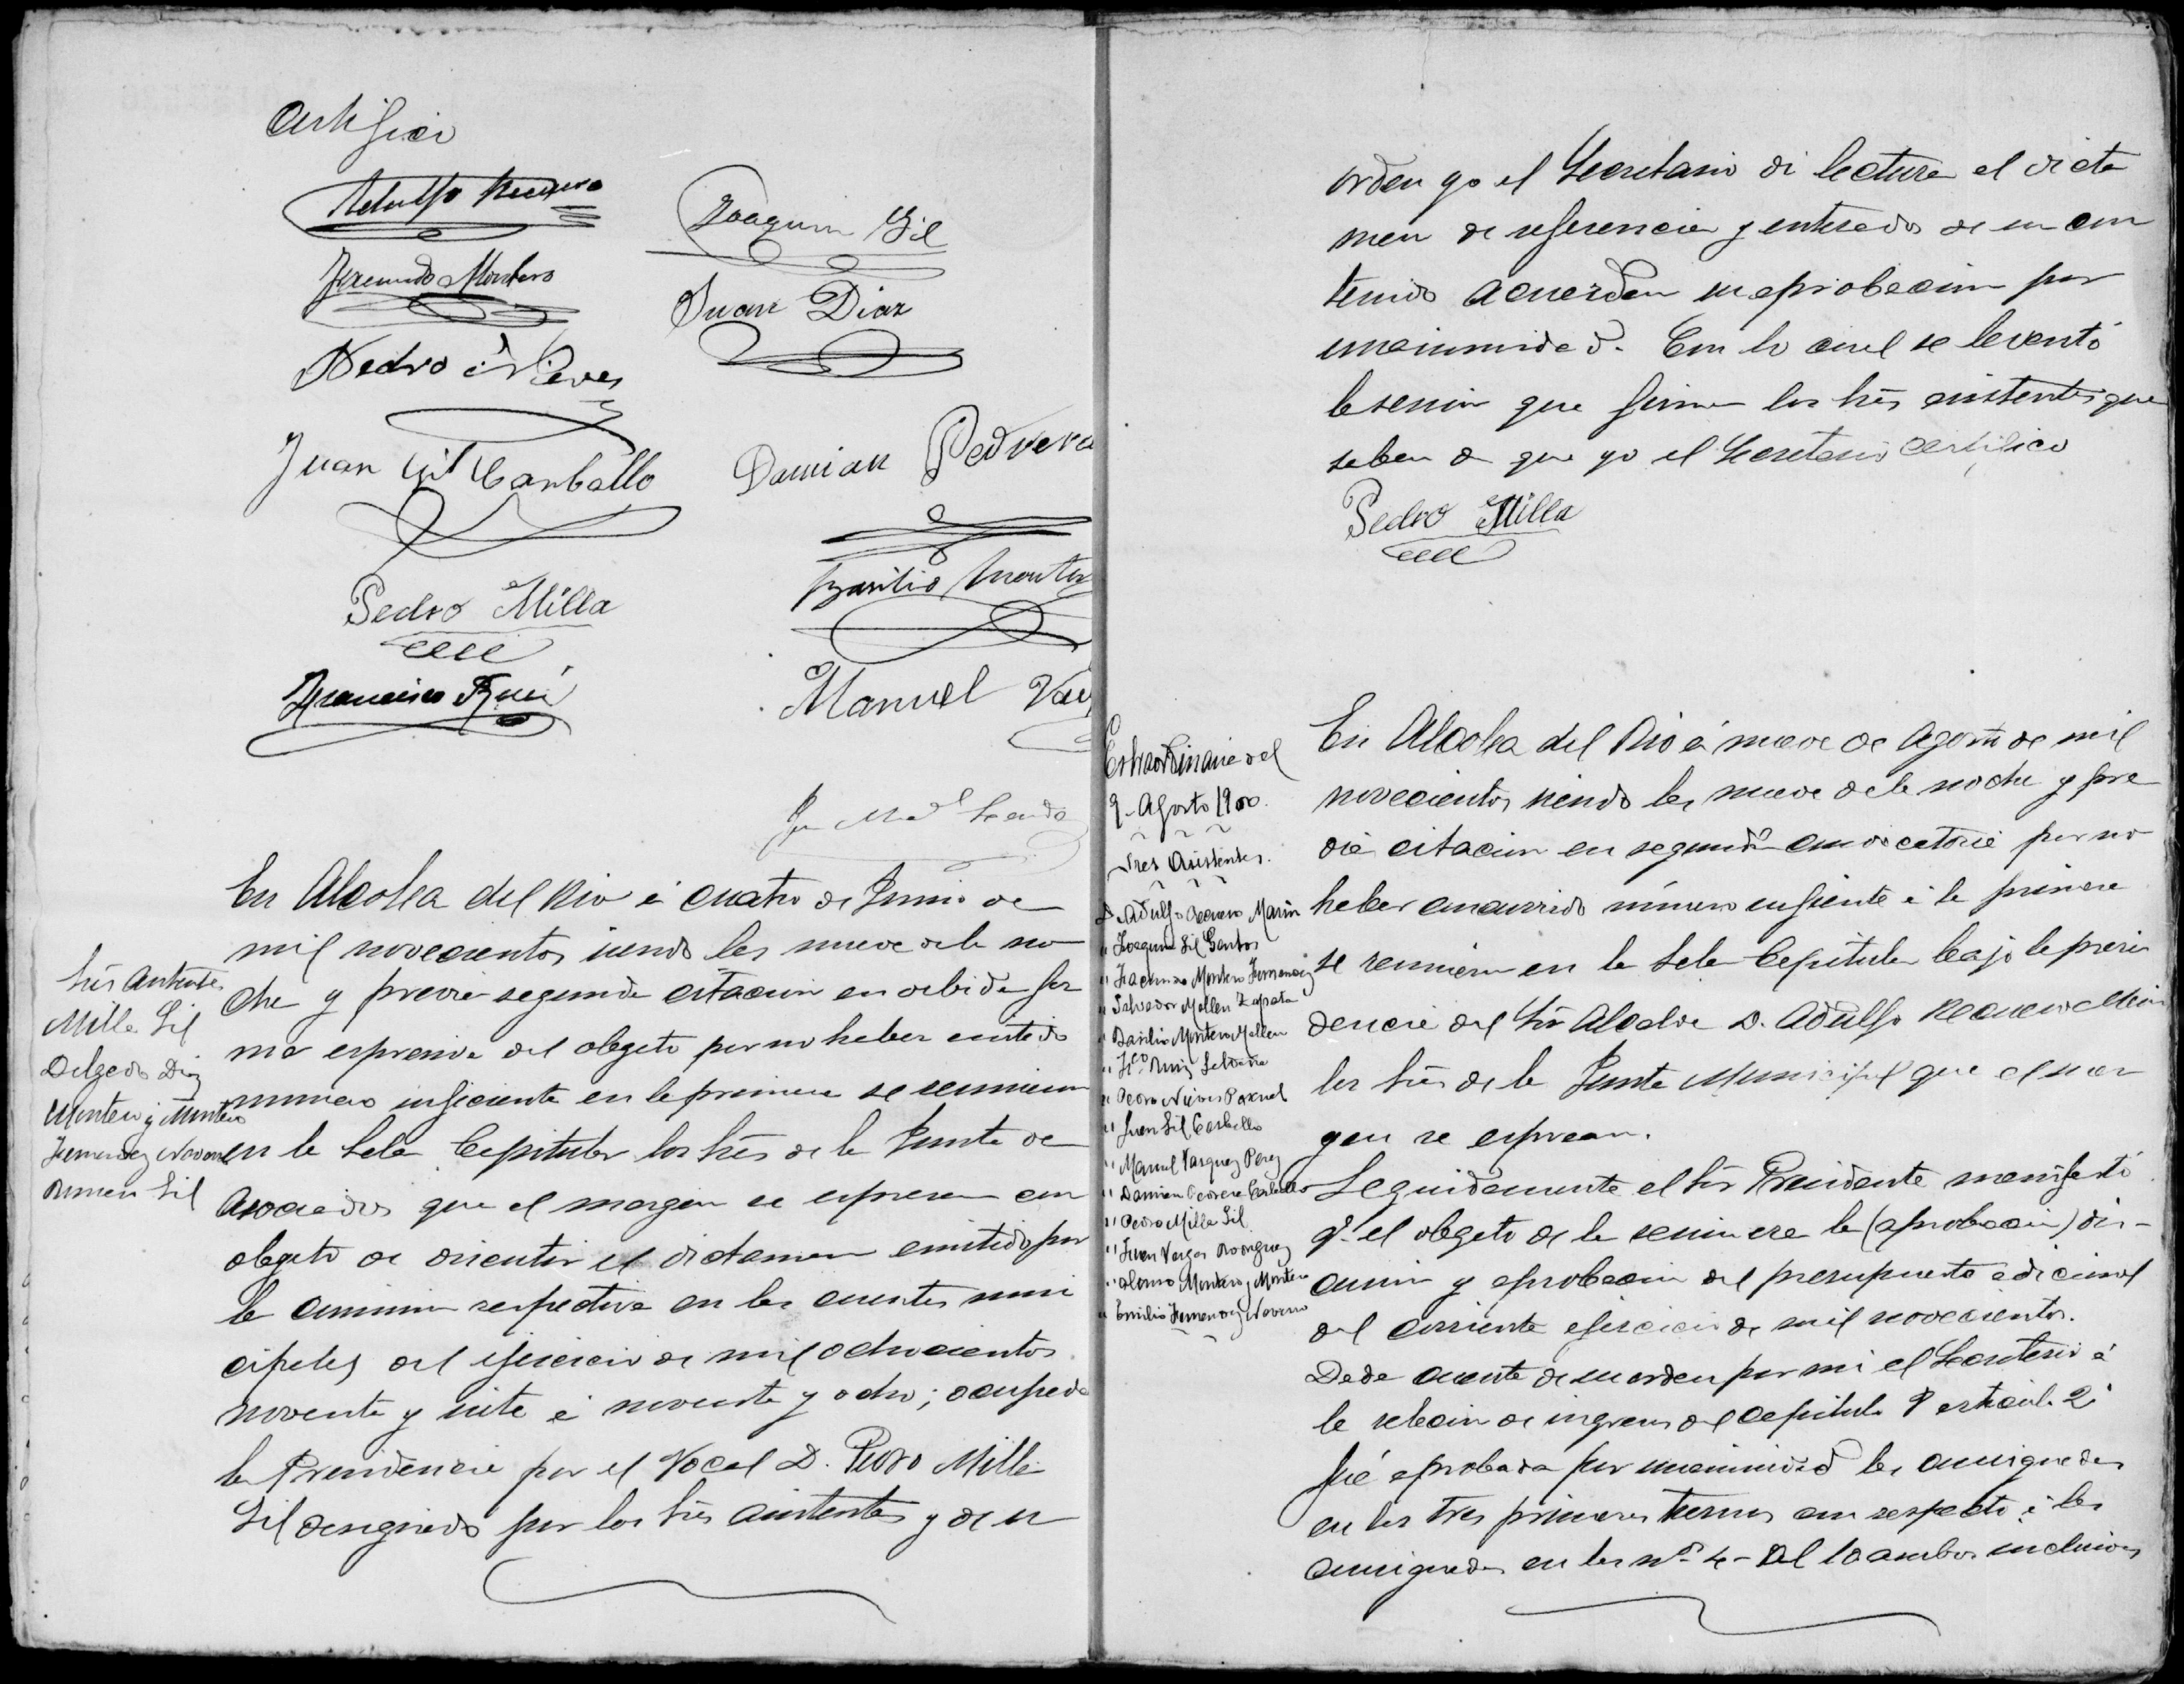 Certifico
Adulfo Recuero
Joaquin Gil
Facundo Montero
Juan Diaz
Pedro Nieves
Juan Gil Carballo
Damian Pedrera
Pedro Milla
Basilio Monter
Francisco Ruiz
Manuel Vaz
En Alcolea del Rio á cuatro de Junio de
mil novecientos siendo las nueve de la no
che y previa segunda citacion en debida for
ma espresiva del obgeto por no haber asistido
numero suficiente en la primera se reunieron
en la Sala Capitular los Sres de la Junta de
Asociados que al margen se espresan con
obgeto de discutir el dictamen emitido por
la comision respectiva en las cuentas muni
cipales del ejercicio de mil ochocientos
noventa y siete á noventa y ocho; ocupada
la Presidencia por el Vocal D. Pedro Milla
Gil designado por los Sres asistentes y de su
Sres Asistentes
Milla Gil
Delgado Diaz
Montero y Montero
Jimenez Navarro
Gil
orden yo el Secretario di lectura al dicta
men de referencia y enterados de su con
tenido acuerdan su aprobacion por
unanimidad. Con lo cual se levantó
la sesion que firman los Sres asistentes que
saben de que yo el Secretario Certifico
Pedro Milla
Estraordinaria del
9 Agosto 1900.
Sres Asistentes.
D. Adulfo Recuero Marin
" Joaquin Gil Santos
" Facundo Montero Jimenez
" Salvador Mallen Zapata
" Basilio Montero Mallen
" Fco Ruiz Saldaña
" Pedro Nieves Pascual
" Juan Gil Carballo
" Manuel Vazquez Perez
" Damian Pedrera Carballo
" Pedro Milla Gil
" Juan Vargas Rodriguez
" Alonso Montero y Montero
" Emilio Jimenez Navarro
En Alcolea del Rio á nueve de Agosto de mil
novecientos siendo las nueve de la noche y pre
via citacion en segunda convocatoria por no
haber concurrido número suficiente á la primera
se reunieron en la Sala Capitular bajo la presi
dencia del Sr Alcalde D. Adulfo Recuero Marin
los Sres de la Junta Municipal que al mar
gen se espresan.
Seguidamente el Sr Presidente manifestó
qe el obgeto de la sesion era la (aprobacion) dis-
cusion y aprobacion del presupuesto adicional
del corriente ejercicio de mil novecientos.
Dada cuenta de su orden por mi el Secretario á
la relacion de ingresos del capitulo 9 articulo 2º
fué aprobada por unanimidad las consignadas
en los tres primeros con respecto á las
consignadas en los nos 4 al 10 ambos inclusives